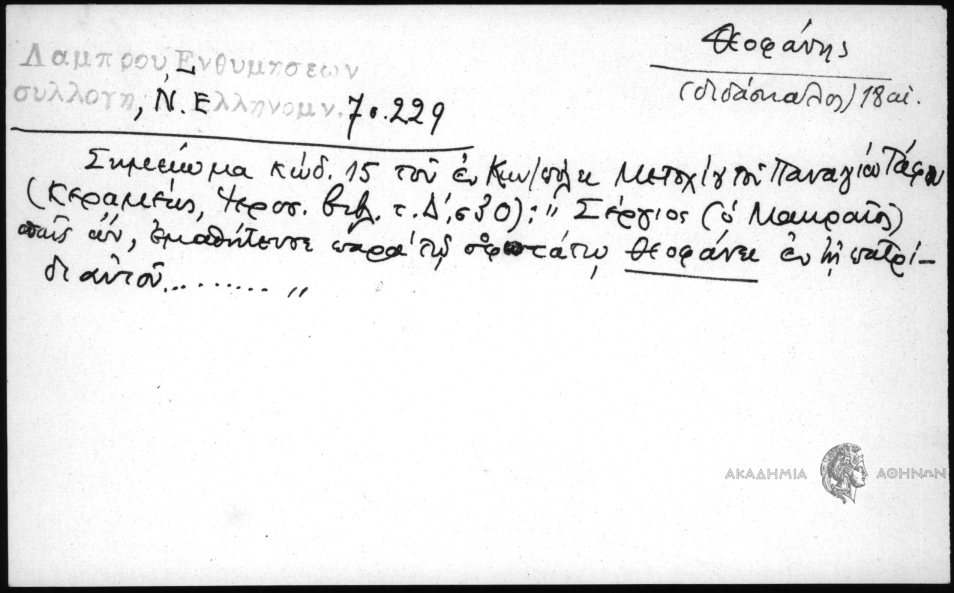 Θεοφάνης
(διδάσκαλος) 18 αἰ.
Λαμπρου, Ενθυμησεων
συλλογη, Ν. Ελληνομν. 7ος. 229
Σημείωμα κώδ. 15 τοῦ ἐν Κων/πόλει Μετοχίου τοῦ Παναγίου Τάφου
(Κεραμεύς, Ἱεροσ. βιβλ. τ. Δ', σ 30): "Σέργιος (ὁ Μακραῖος)
παῖς ὤν, ἐμαθήτευσε παρὰ τῷ σοφωτάτῳ Θεοφάνει ἐν τῇ πατρί-
δι αὐτοῦ.........."
ΑΚΑΔΗΜΙΑ ΑΘΗΝΩΝ